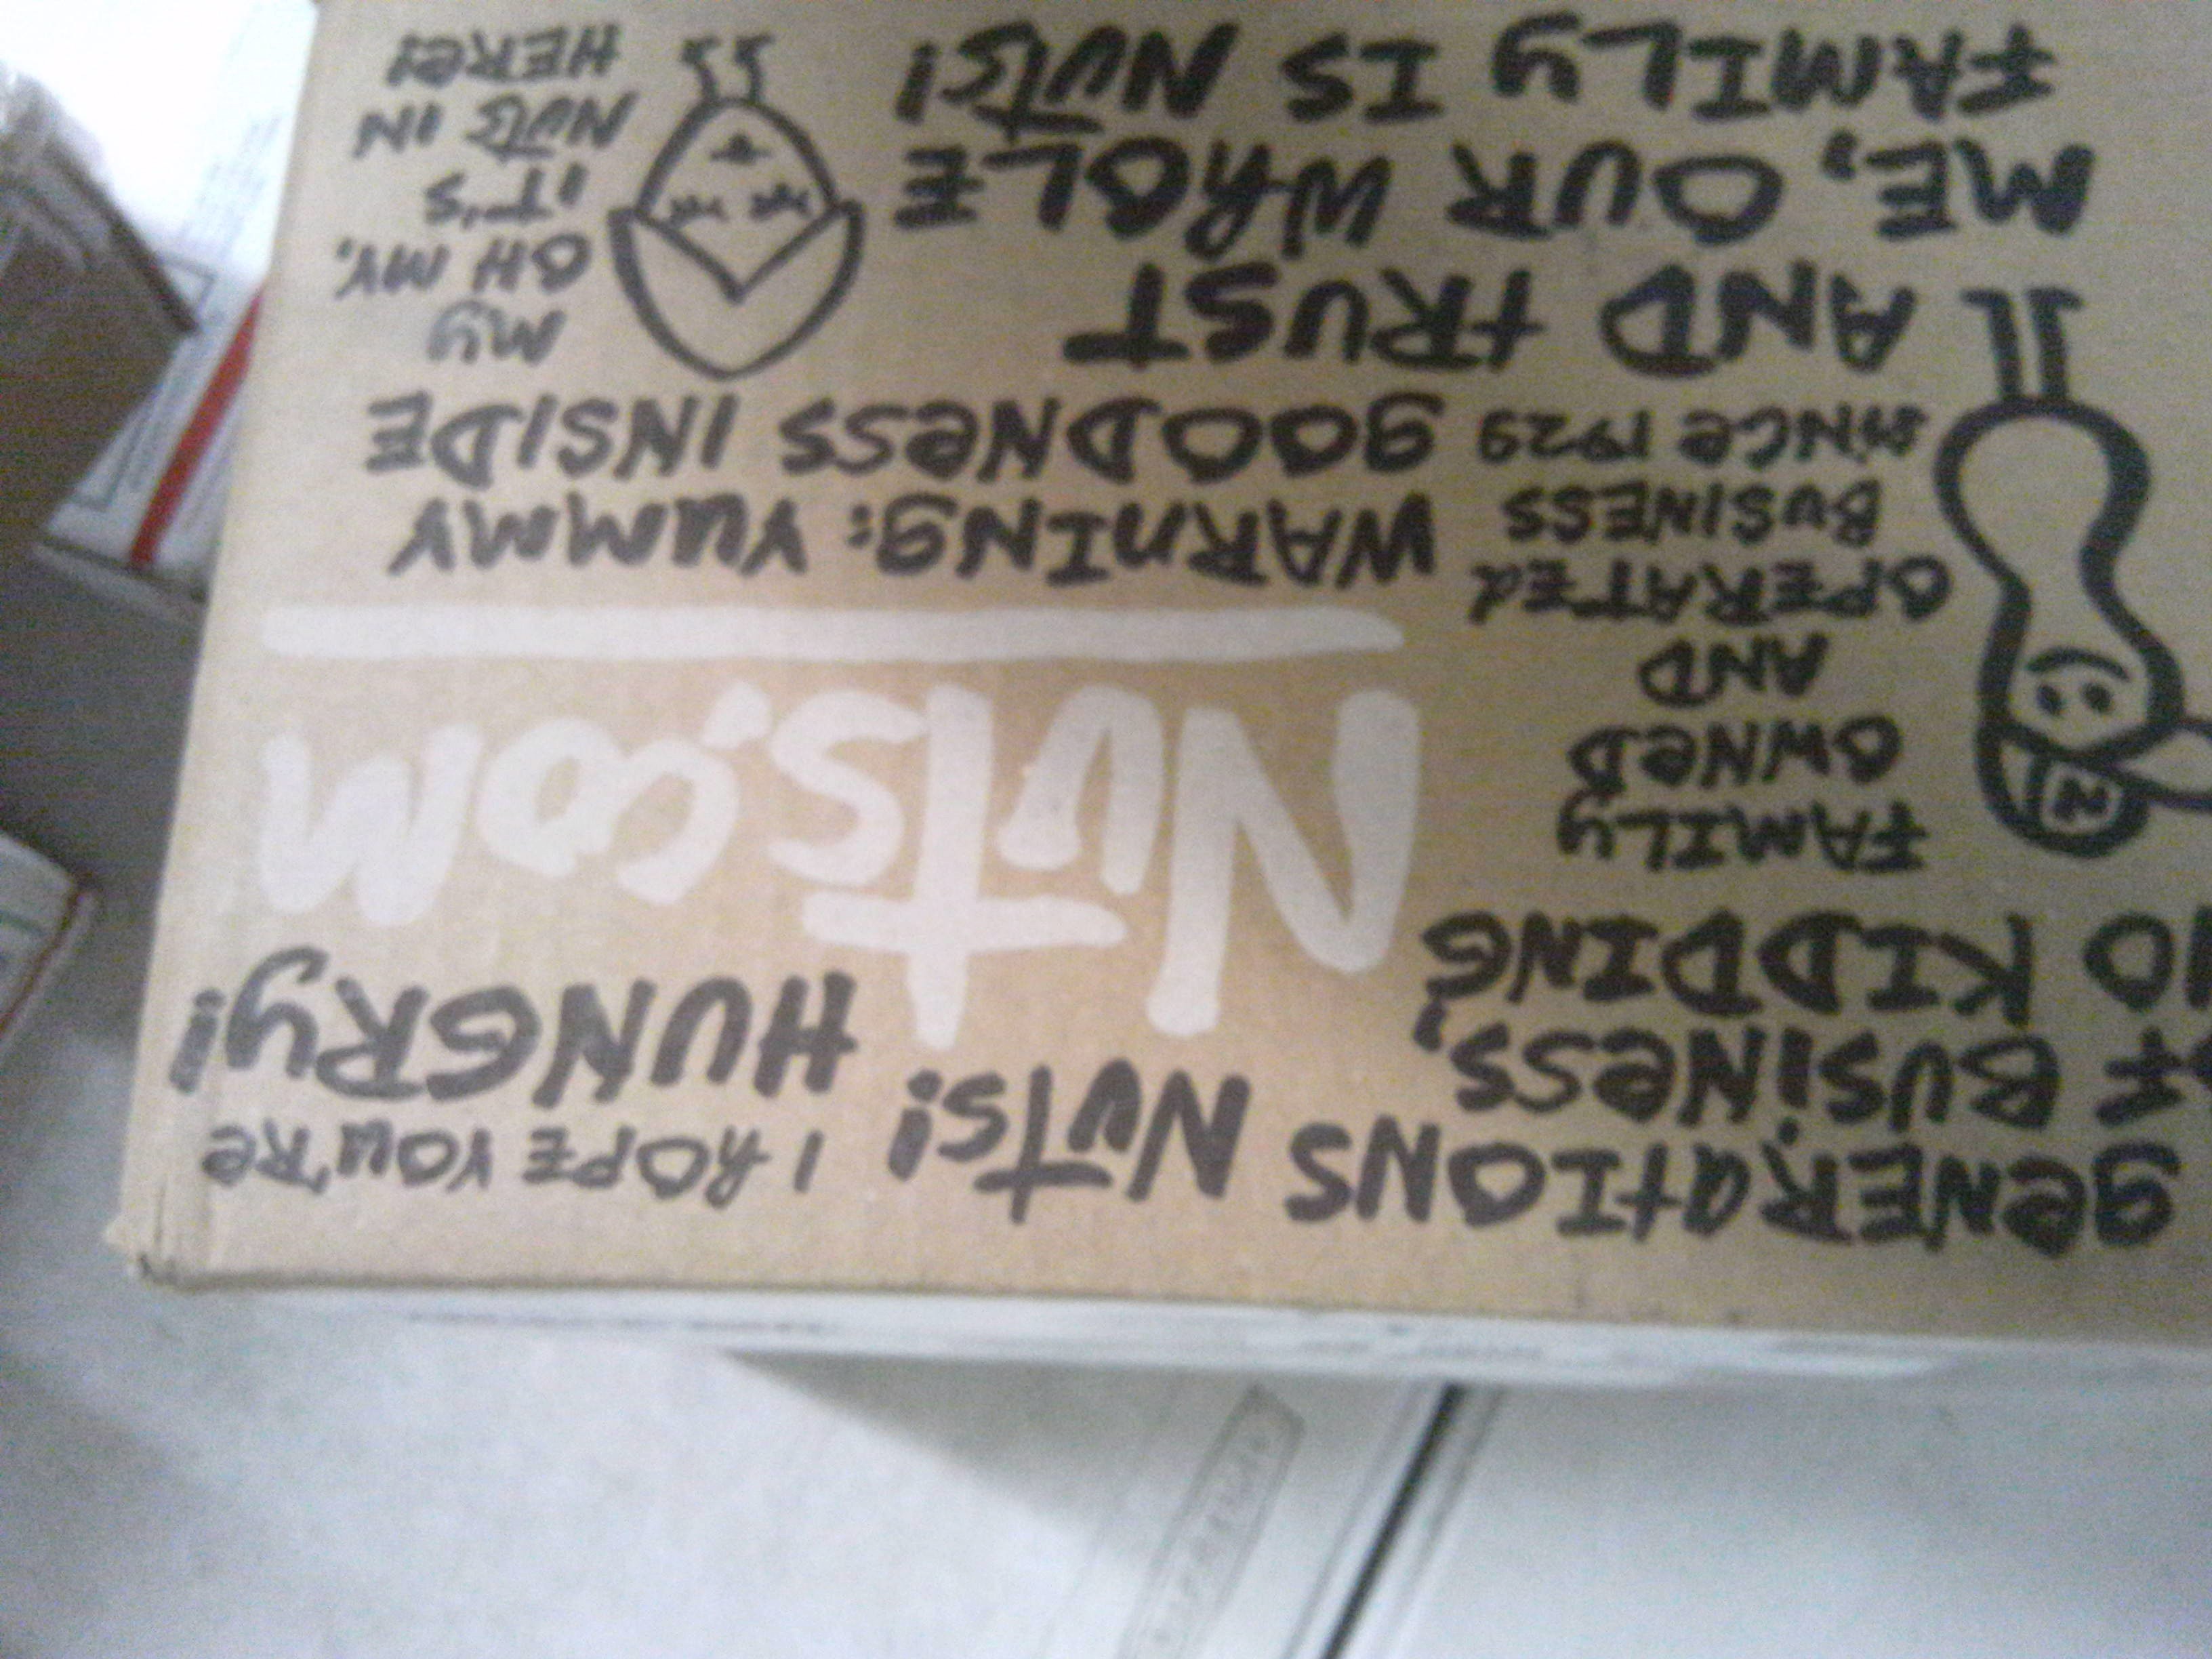 GENERATIONS
BUSINESS,
KIDDING
NUTS!
I HOPE YOU'RE
HUNGRY!
Nuts.com
FAMILY
OWNED
AND
OPERATED
BUSINESS
SINCE 1929
WARNING: YUMMY
GOODNESS INSIDE
AND TRUST
ME, OUR WHOLE
FAMILY IS NUTS!
MY
OH MY,
IT'S
NUTS IN
HERE!
N